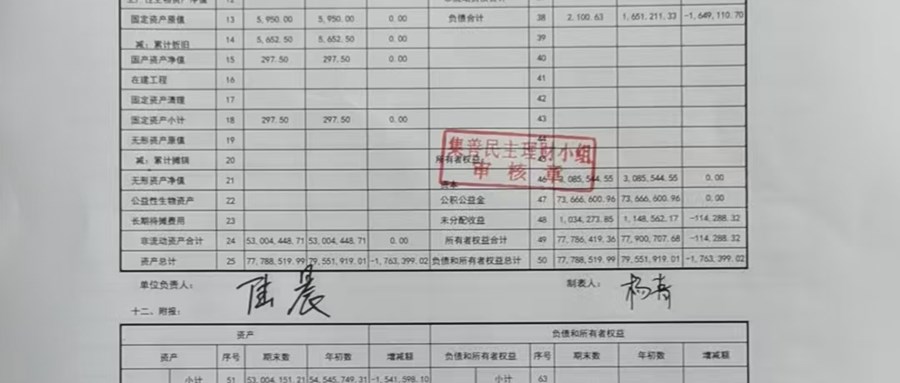 固定资产原值 13 5,950.00 5,950.00 0.00 负债合计 38 2,100.63 1,651,211.33 -1,649,110.70
减：累计折旧 14 5,652.50 5,652.50 0.00 39
固产资产净值 15 297.50 297.50 0.00 40
在建工程 16 41
固定资产清理 17 42
固定资产小计 18 297.50 297.50 0.00 43
无形资产原值 19 44
减：累计摊销 20 所有者权益： 45
无形资产净值 21 资本 46 3,085,544.55 3,085,544.55 0.00
公益性生物资产 22 公积公益金 47 73,666,600.96 73,666,600.96 0.00
长期待摊费用 23 未分配收益 48 1,034,273.85 1,148,562.17 -114,288.32
非流动资产合计 24 53,004,448.71 53,004,448.71 0.00 所有者权益合计 49 77,786,419.36 77,900,707.68 -114,288.32
资产总计 25 77,788,519.99 79,551,919.01 -1,763,399.02 负债和所有者权益总计 50 77,788,519.99 79,551,919.01 -1,763,399.02
集普民主理财小组
审核章
单位负责人： 制表人：
十二、附报：
资产 负债和所有者权益
资产 序号 期末数 年初数 增减额 负债和所有者权益 序号 期末数 年初数 增减额
小计 51 53,004,151.21 54,545,749.31 -1,541,598.10 小计 63